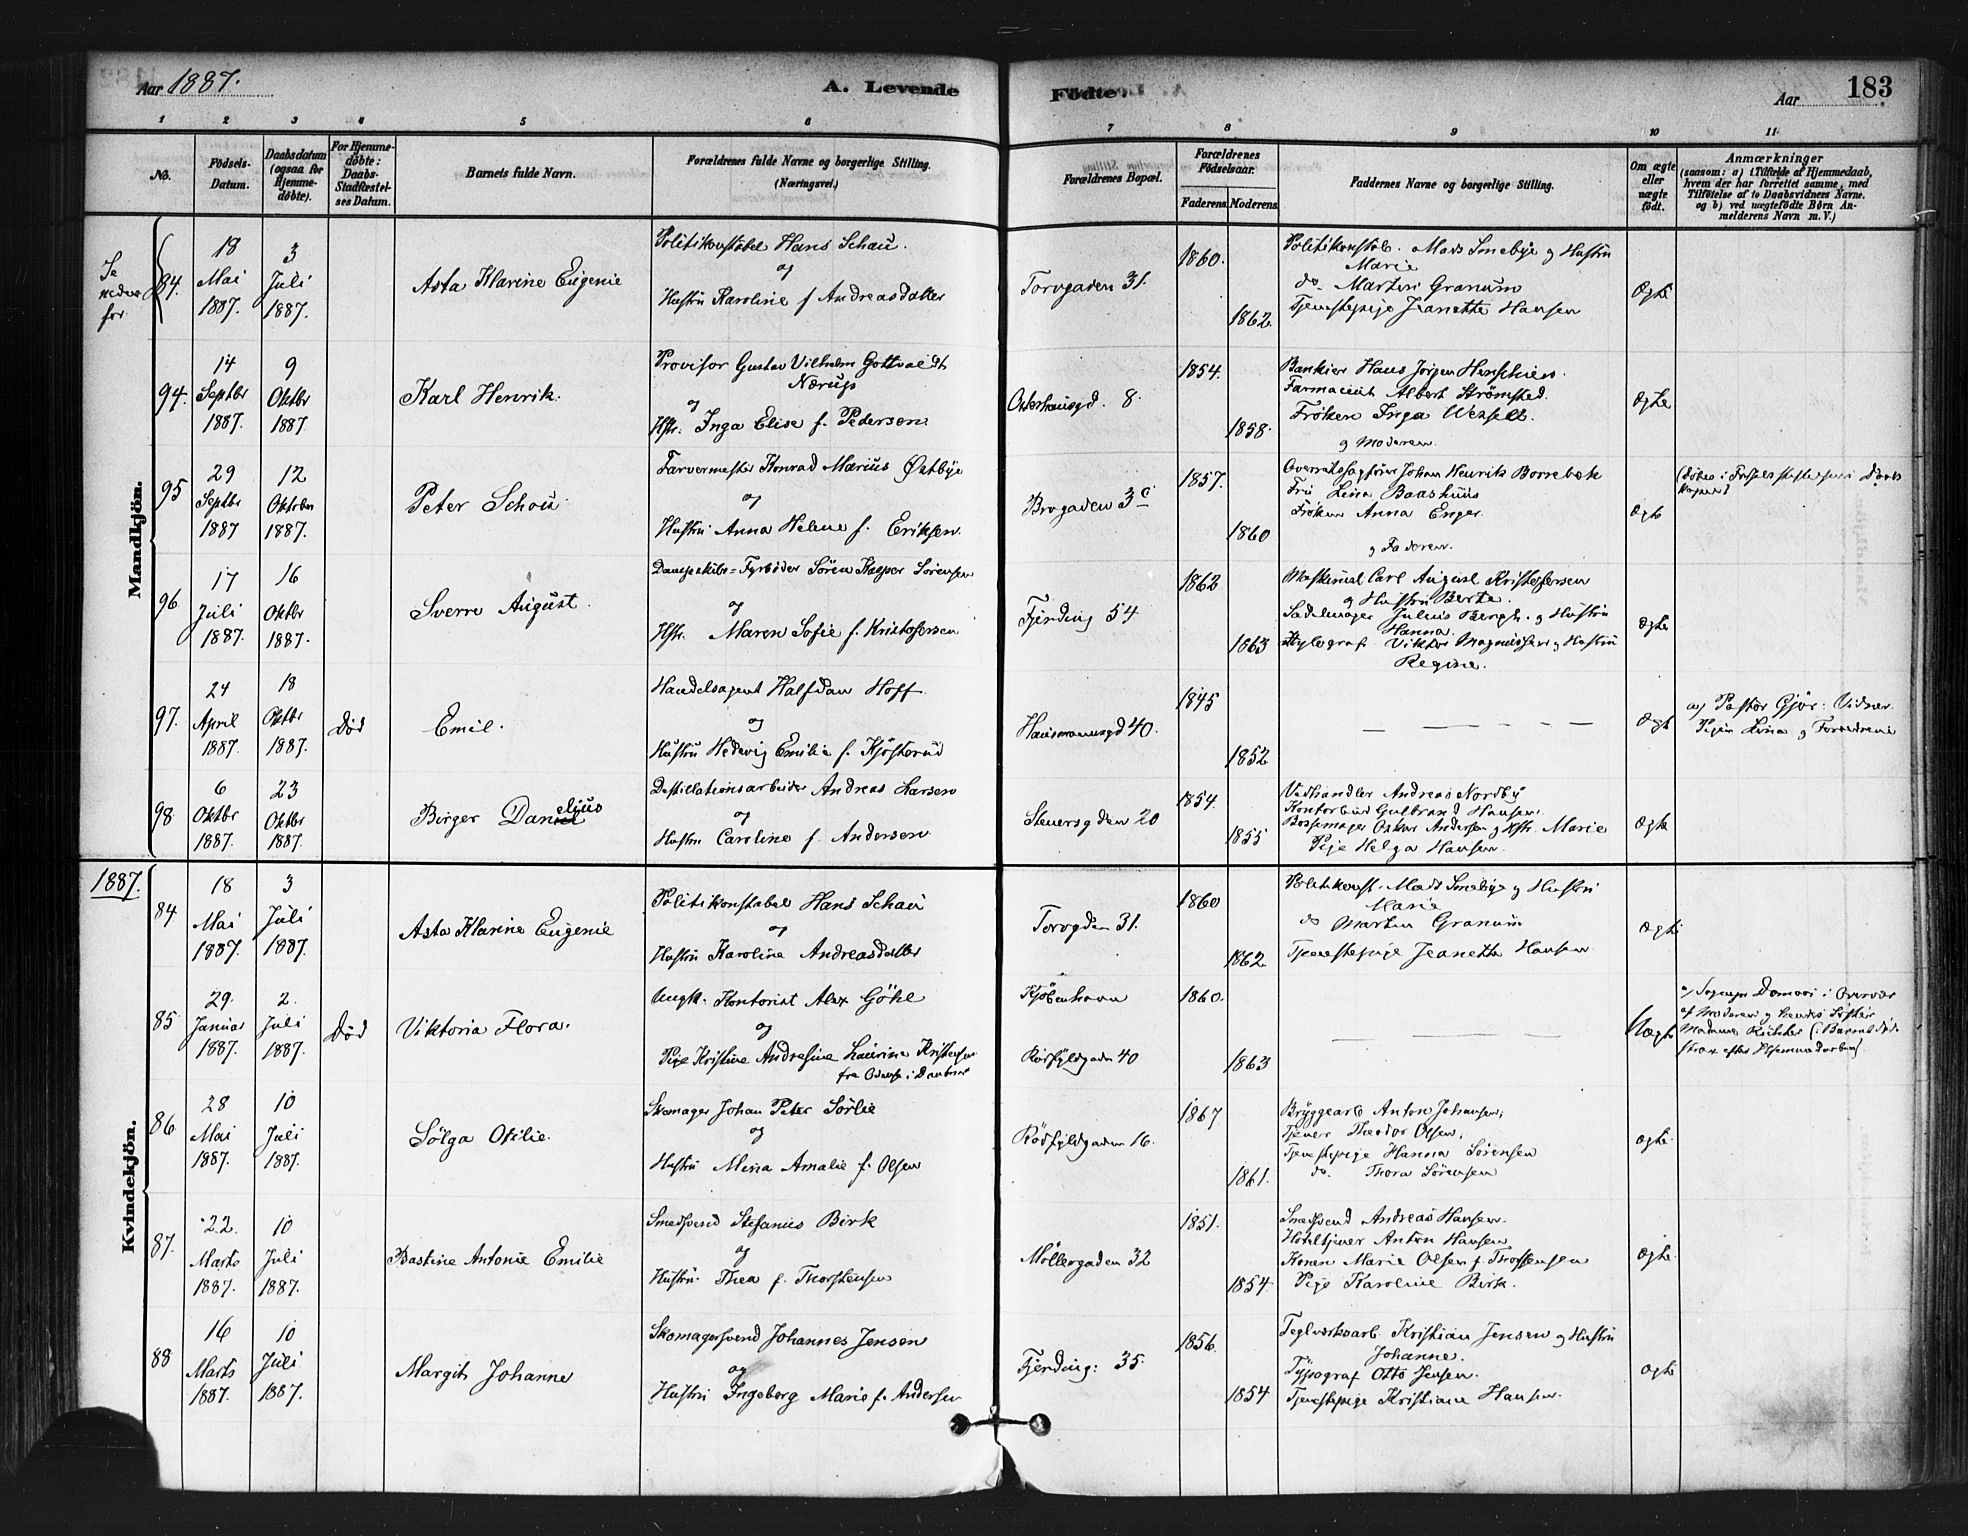 Aar 1887.
A. Levende
Fødte.
Aar
183
1 2 3 4 5 6 7 8 9 10 11
No.
Fødsels-Datum.
Daabsdatum (ogsaa for Hjemme-døbte).
For Hjemme-døbte: Daabs-Stadfæstel-ses Datum.
Barnets fulde Navn.
Forældrenes fulde Navne og borgerlige Stilling. (Næringsvei.)
Forældrenes Bopæl.
Forældrenes Fødselsaar.
Faderens Moderens
Faddernes Navne og borgerlige Stilling.
Om ægte eller uægte født.
Anmærkninger (saasom: a) i Tilfælde af Hjemmedaab, hvem der har forrettet samme, med Tilføielse af to Daabsvidners Navne, og b) ved uægtefødte Børn An-melderens Navn m. V.)
Mandkjön.
Se nedenfor
84. 18 Mai 1887. 3 Juli 1887. Asta Klarine Eugenie
Politikonstabel Hans Schau.
og
Hustru Karoline f Andreasdatter
Torvgaden 31. 1860. 1862.
Politikonstab. Mads Smebye og Hustru
Marie
do. Martin Granum
Tjenestepige Jeanette Hansen
Ægte
94. 14 Septbr 1887. 9 Oktbr 1887 Karl Henrik.
Provisor Gustav Vilhelm Gottvaldt
Nærup
og
Hstr. Inga Elise f. Pedersen
Osterhausgd. 8. 1854. 1858.
Bankier Hans Jørgen Henschien.
Farmaceut Albert Strømsted.
Frøken Inga Wessel.
og Moderen.
Ægte
95 29 Septbr 1887 12 Oktober 1887. Peter Schou
Farvermester Konrad Marius Østbye
og
Hustru Anna Helene f. Eriksen.
Brogaden 3c 1857. 1860
Overretssagfører Johan Henrik Borrebæk
Fru Lina Baashuus
Frøken Anna Enger.
og Faderen.
Ægte
96. 17 Juli 1887. 16 Oktbr 1887. Sverre August.
Dampskibs-Fyrbøder Sören Kasper Sørensen
og
Hstr. Maren Sofie f. Kristofersen
Fjerding 54 1862 1863
Maskinist Carl August Kristofersen
og Hustru Berte.
Sadelmager Julius Bergh. og Hustru
Hanna.
Xylograf Viktor Magnussen og Hustru
Regine.
Ægte
97. 24 April 1887. 18 Oktbr 1887. Död Emil.
Handelsagent Halfdan Hoff
og
Hustru Hedevig Emilie f. Kjøsterud
Hausmannsgd 40. 1845 1852
Ægte
a) Pastor Gjör: Vidner.
Pigen Lina og Forældrene
98. 6 Oktbr 1887. 23 Oktbr 1887. Birger Danieljus
Destillationsarbeider Andreas Larsen
og
Hustru Caroline f. Andersen
Steversgden 20 1854. 1855
Vedhandler Andreas Nordby
Kontorbud Gulbrand Hansen.
Bøssemager Oskar Andersen og Hstr. Marie
Pige Helga Hansen.
Ægte
1887.
Kvindekjön.
84 18 Mai 1887. 3 Juli 1887. Asta Klarine Eugenie
Politikonstabel Hans Schau
og
Hustru Karoline Andreasdatter
Torvgden 31. 1860 1862
Politikonst. Mads Smebye og Hustru
Marie
do Martin Granum
Tjenestepige Jeanette Hansen
Ægte
85 29. Januar 1887. 2. Juli 1887. Död Viktoria Flora.
Ungk. Kontorist Alex Gøhl
og
Pige Kristine Andresine Laurine Kristensen
fra Odense i Danmark
Kjøbenhavn
Rörfyldgaden 40 1860. 1863
Uægte
86 28 Mai 1887. 10 Juli 1887. Sölga Otilie.
Skomager Johan Peter Sörlie
og
Hustru Mina Amalie f. Olsen
Rödfyldgaden 16. 1867. 1861.
Bryggearb Anton Johansen;
Tjener Theodor Olsen;
Tjenestepige Hanna Sørensen
do. Thora Sørensen
Ægte
87. 22. Marts 1887. 10 Juli 1887. Bastine Antonie Emilie
Smedsvend Stefanus Birk
og
Hustru Thea f. Thorstensen
Møllergaden 32 1851. 1854
Smedsvend Andreas Hansen.
Hoteltjener Anton Hansen
Konen Marie Olsen f. Thorstensen
Pige Karoline Birk.
Ægte
88 16 Marts 1887. 10 Juli 1887. Margit Johanne
Skomagersvend Johannes Jensen
og
Hustru Ingeborg Marie f. Andersen
Fjerding: 35. 1856. 1854
Teglværksarb Kristian Jensen og Hustru
Johanne.
Typograf Otto Jensen.
Tjenestepige Kristiane Hansen.
ægte